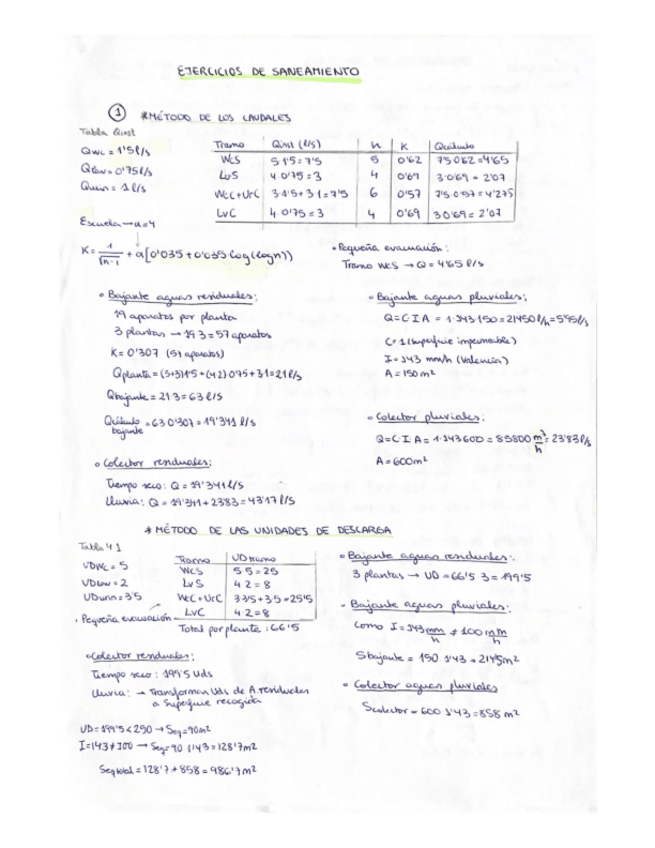 EJERCICIOS DE SANEAMIENTO
① *MÉTODO DE LOS CAUDALES
Tabla Qinst
Qwc = 1'5 l/s
Qlav = 0'75 l/s
Qurin = 1 l/s
Escuela → α=4
Tramo Qinst (l/s) n K Qcálculo
WCS 5·1'5=7'5 5 0'62 7'5·0'62=4'65
LVS 4·0'75=3 4 0'69 3·0'69=2'07
WCC+UrC 3·1'5+3·1=7'5 6 0'57 7'5·0'57=4'275
LVC 4·0'75=3 4 0'69 3·0'69=2'07
K = 1/√n-1 + α[0'035+0'035 log(logn))
• Pequeña evacuación:
Tramo WCS → Q=4'65 l/s
• Bajante aguas residuales:
19 aparatos por planta
3 plantas → 19·3=57 aparatos
K=0'307 (57 aparatos)
Qplanta=(5+3)·1'5+(4·2)·0'75+3·1=21 l/s
Qbajante=21·3=63 l/s
Qcálculo bajante = 63·0'307=19'341 l/s
• Bajante aguas pluviales:
Q=C·I·A = 1·143·150=21450 l/h=5'95 l/s
C=1 (superficie impermeable)
I=143 mm/h (Valencia)
A=150 m²
• Colector pluviales:
Q=C·I·A = 1·143·600 = 85800 m³/h = 23'83 l/s
A=600 m²
• Colector residuales:
Tiempo seco: Q=19'341 l/s
Lluvia: Q=19'341+23'83=43'17 l/s
* MÉTODO DE LAS UNIDADES DE DESCARGA
Tabla 4.1
UDwc = 5
UDlav = 2
UDurin = 3'5
• Pequeña evacuación
Tramo UD tramo
WCS 5·5=25
LVS 4·2=8
WCC+UrC 3·3'5+3·5=25'5
LVC 4·2=8
Total por planta: 66'5
• Bajante aguas residuales:
3 plantas → UD=66'5·3=199'5
• Bajante aguas pluviales:
Como I=143 mm/h ≠ 100 mm/h
Sbajante = 150·1'43=214'5 m²
• Colector aguas pluviales
Scolector=600·1'43=858 m²
• Colector residuales:
Tiempo seco: 199'5 Uds
Lluvia: → Transforman Uds de A. residuales
a superficie recogida
UD=199'5<250 → Seq=90m²
I=143≠100 → Seq=90·1'143=128'7m²
Seq total=128'7+858=986'7m²